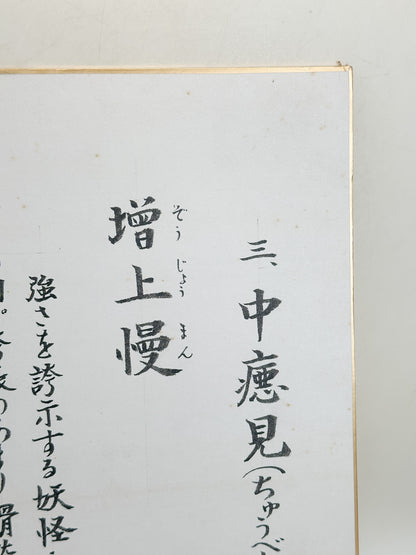 三、中癋見(ちゅうべ
増上慢
ぞうじょうまん
強さを誇示する妖怪